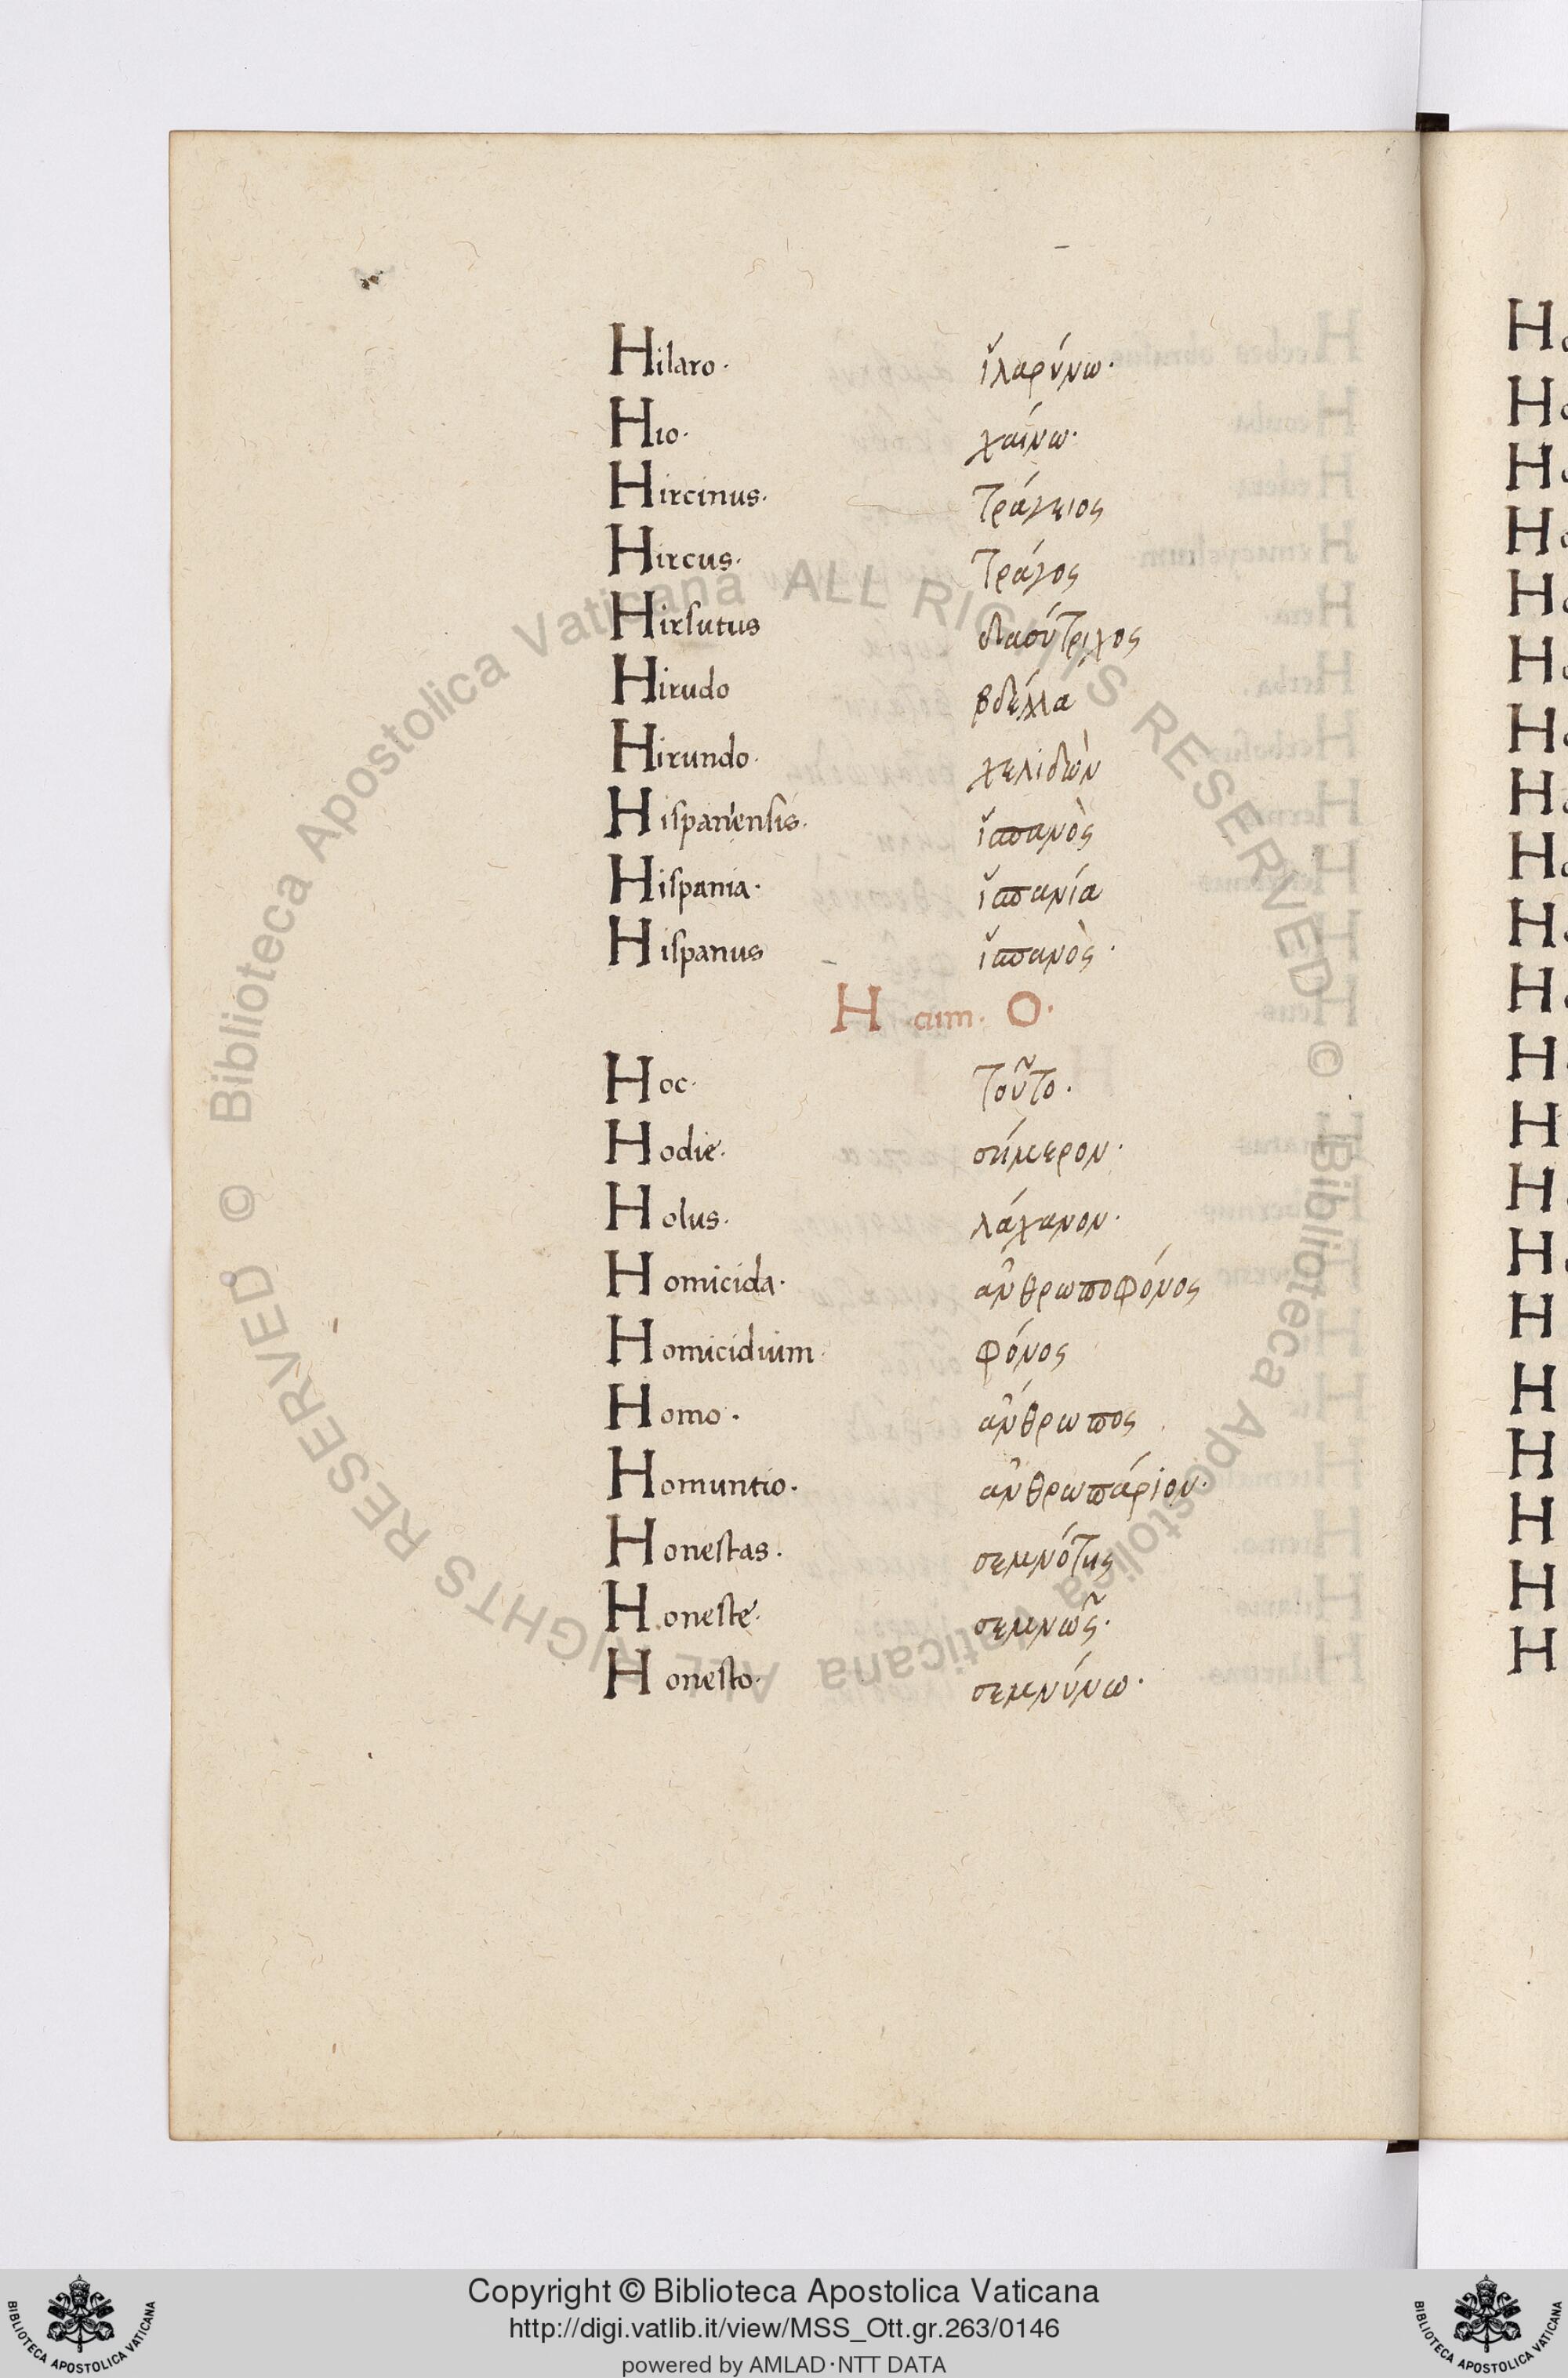 Hilaro· ἱλαρύνω·
Hio· χαίνω·
Hircinus· τράγειος
Hircus· τράγος
Hirsutus δασύτριχος
Hirudo βδέλλα
Hirundo· χελιδὼν
Hispaniensis· ἱσπανὸς
Hispania· ἱσπανία
Hispanus ἱσπανὸς·
H cum· O·
Hoc· τοῦτο·
Hodie· σήμερον·
Holus· λάχανον·
Homicida· ἀνθρωποφόνος
Homicidium· φόνος
Homo· ἄνθρωπος
Homuntio· ἀνθρωπάριον·
Honestas· σεμνότης
Honeste· σεμνῶς·
Honesto· σεμνύνω·
© Biblioteca Apostolica Vaticana ALL RIGHTS RESERVED © Biblioteca Apostolica Vaticana ALL RIGHTS RESERVED
Copyright © Biblioteca Apostolica Vaticana
http://digi.vatlib.it/view/MSS_Ott.gr.263/0146
powered by AMLAD·NTT DATA
BIBLIOTECA APOSTOLICA VATICANA
BIBLIOTECA APOSTOLICA VATICANA